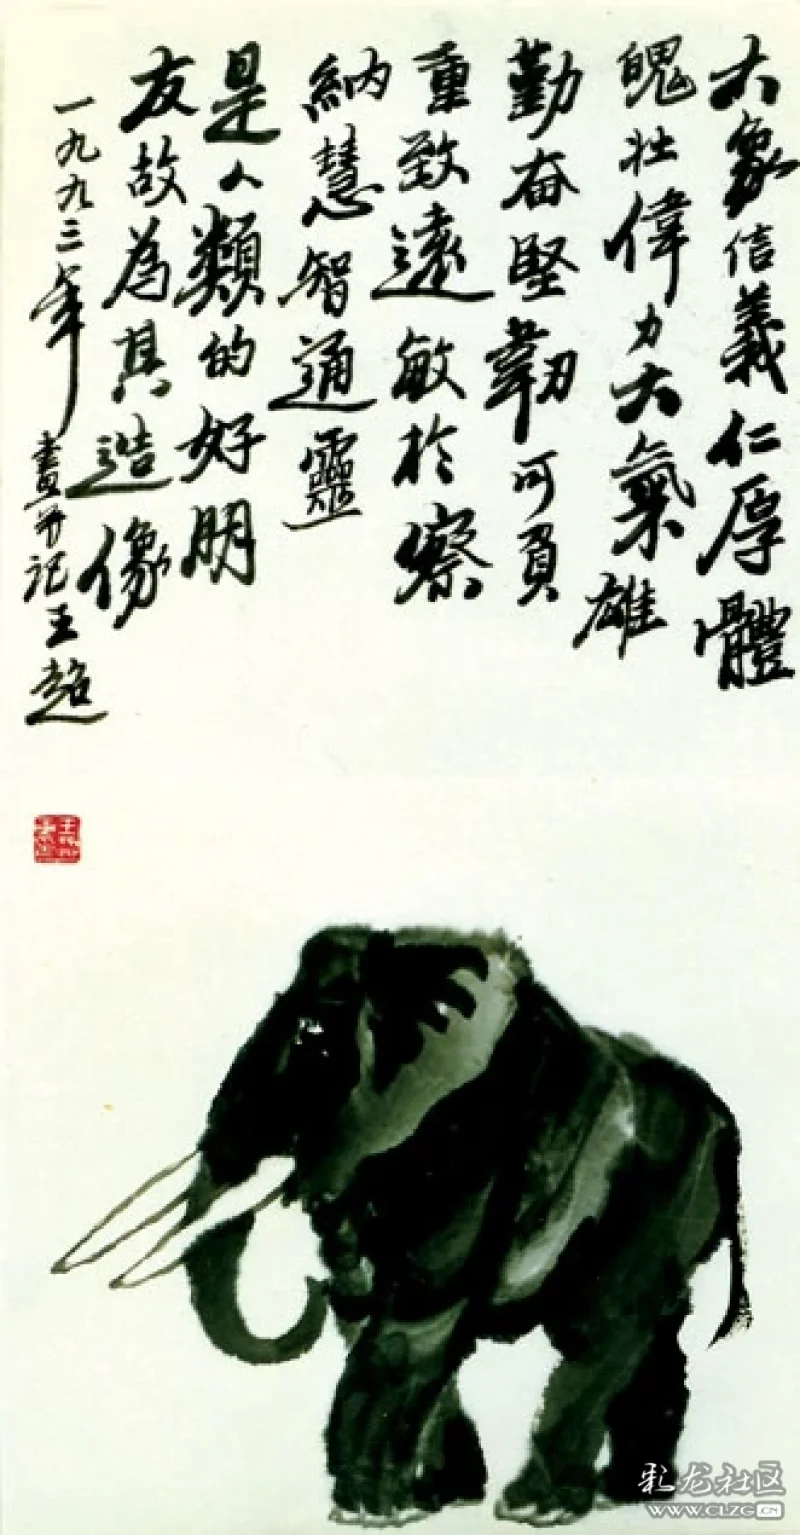 大象信義仁厚體
魄壯偉力大氣雄
勤奮堅韌可負
重致遠敏於察
納慧智通靈
是人類的好朋
友故為其造像
一九九三年畫並記王超
彩龙社区
WWW.CLZG.CN